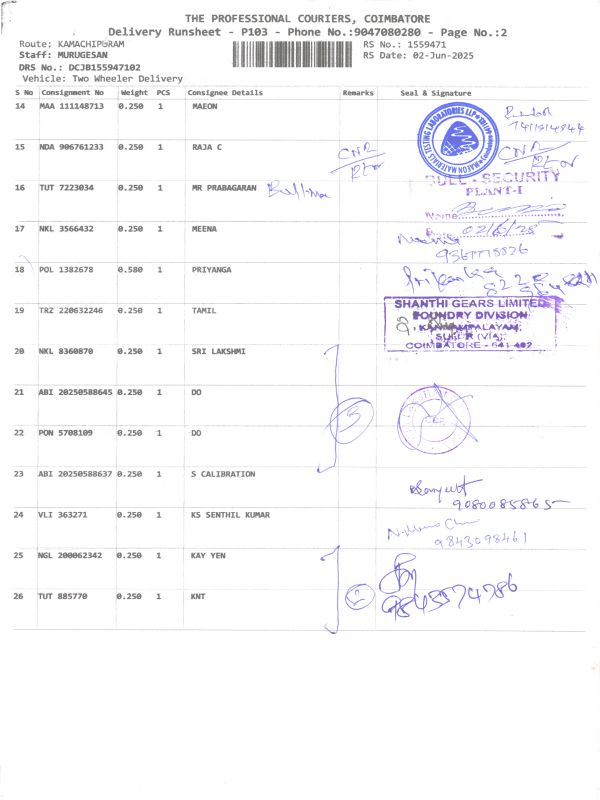 THE PROFESSIONAL COURIERS, COIMBATORE
Delivery Runsheet - P103 - Phone No.:9047080280 - Page No.:2
Route: KAMACHIPURAM RS No.: 1559471
Staff: MURUGESAN RS Date: 02-Jun-2025
DRS No.: DCJB155947102
Vehicle: Two Wheeler Delivery
S No Consignment No Weight PCS Consignee Details Remarks Seal & Signature
14 MAA 111148713 0.250 1 MAEON
MATERIALS TESTING LABORATORIES LLP
15 NDA 906761233 0.250 1 RAJA C CNR CNR
16 TUT 7223034 0.250 1 MR PRABAGARAN
BULL - SECURITY
PLANT-I
Name
17 NKL 3566432 0.250 1 MEENA
02/6/25
18 POL 1382678 0.580 1 PRIYANGA
19 TRZ 220632246 0.250 1 TAMIL
SHANTHI GEARS LIMITED
FOUNDRY DIVISION
KANNAMPALAYAM,
SULUR (VIA),
COIMBATORE - 641 402
20 NKL 8360870 0.250 1 SRI LAKSHMI
21 ABI 20250588645 0.250 1 DO
3
22 PON 5708109 0.250 1 DO
23 ABI 20250588637 0.250 1 S CALIBRATION
9080085865
24 VLI 363271 0.250 1 KS SENTHIL KUMAR
9843098461
25 NGL 200062342 0.250 1 KAY YEN
2
26 TUT 885770 0.250 1 KNT